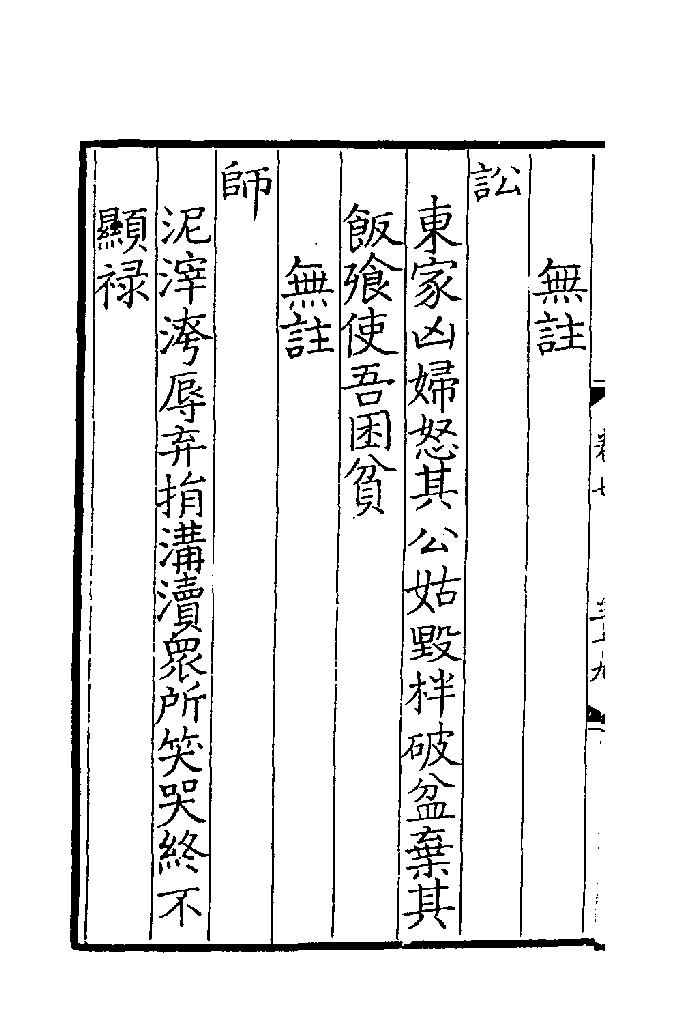 無註
訟
東家凶婦怒其公姑毀柈破盆棄其
飯飱使吾困貧
無註
師
泥滓洿辱弃捐溝瀆眾所笑哭終不
顯禄